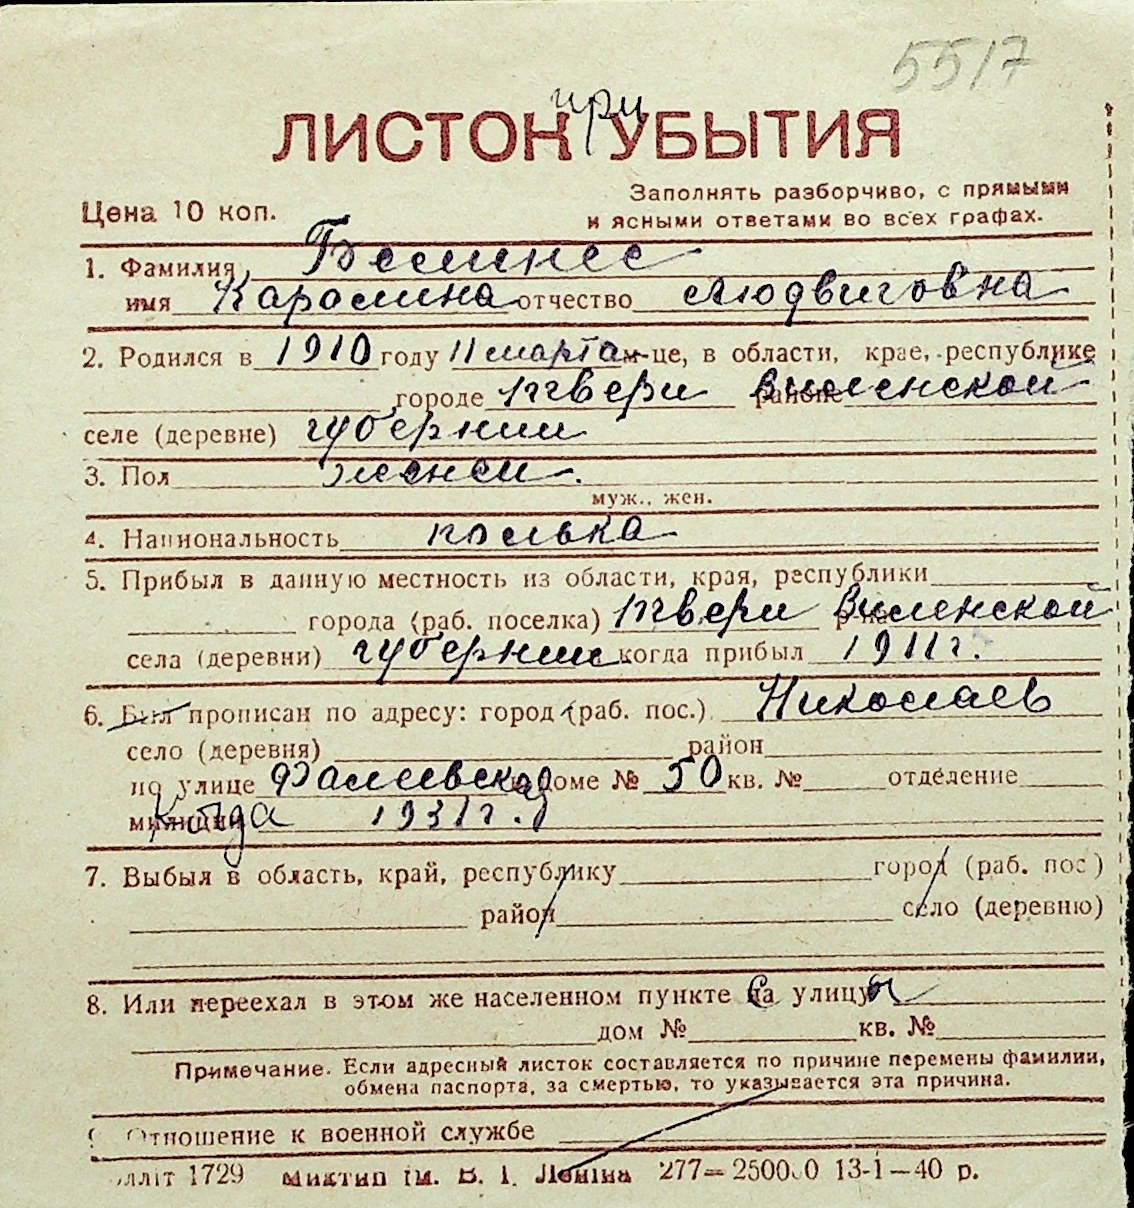 5517
ЛИСТОК при УБЫТИЯ
Заполнять разборчиво, с прямыми
Цена 10 коп.
и ясными ответами во всех графах.
1. Фамилия
имя Каролина отчество Людвиговна
2. Родился в 1910 году 11 марта м-це, в области, крае, республике
городе Твери районе Виленской
селе (деревне) губернии
3. Пол женск.
муж., жен.
4. Национальность полька
5. Прибыл в данную местность из области, края, республики
города (раб. поселка) Твери р-на Виленской
села (деревни) губернии когда прибыл 1911 г.
6. Был прописан по адресу: город (раб. пос.) Николаев
село (деревня) район
по улице Фалеевской в доме № 50 кв. № отделение
милиции Когда 1931 г.
7. Выбыл в область, край, республику город (раб. пос)
район село (деревню)
8. Или переехал в этом же населенном пункте на улицу
дом № кв. №
Примечание. Если адресный листок составляется по причине перемены фамилии,
обмена паспорта, за смертью, то указывается эта причина.
Отношение к военной службе
1729 Миктип ім. В. І. Леніна 277—250000 13-І—40 р.